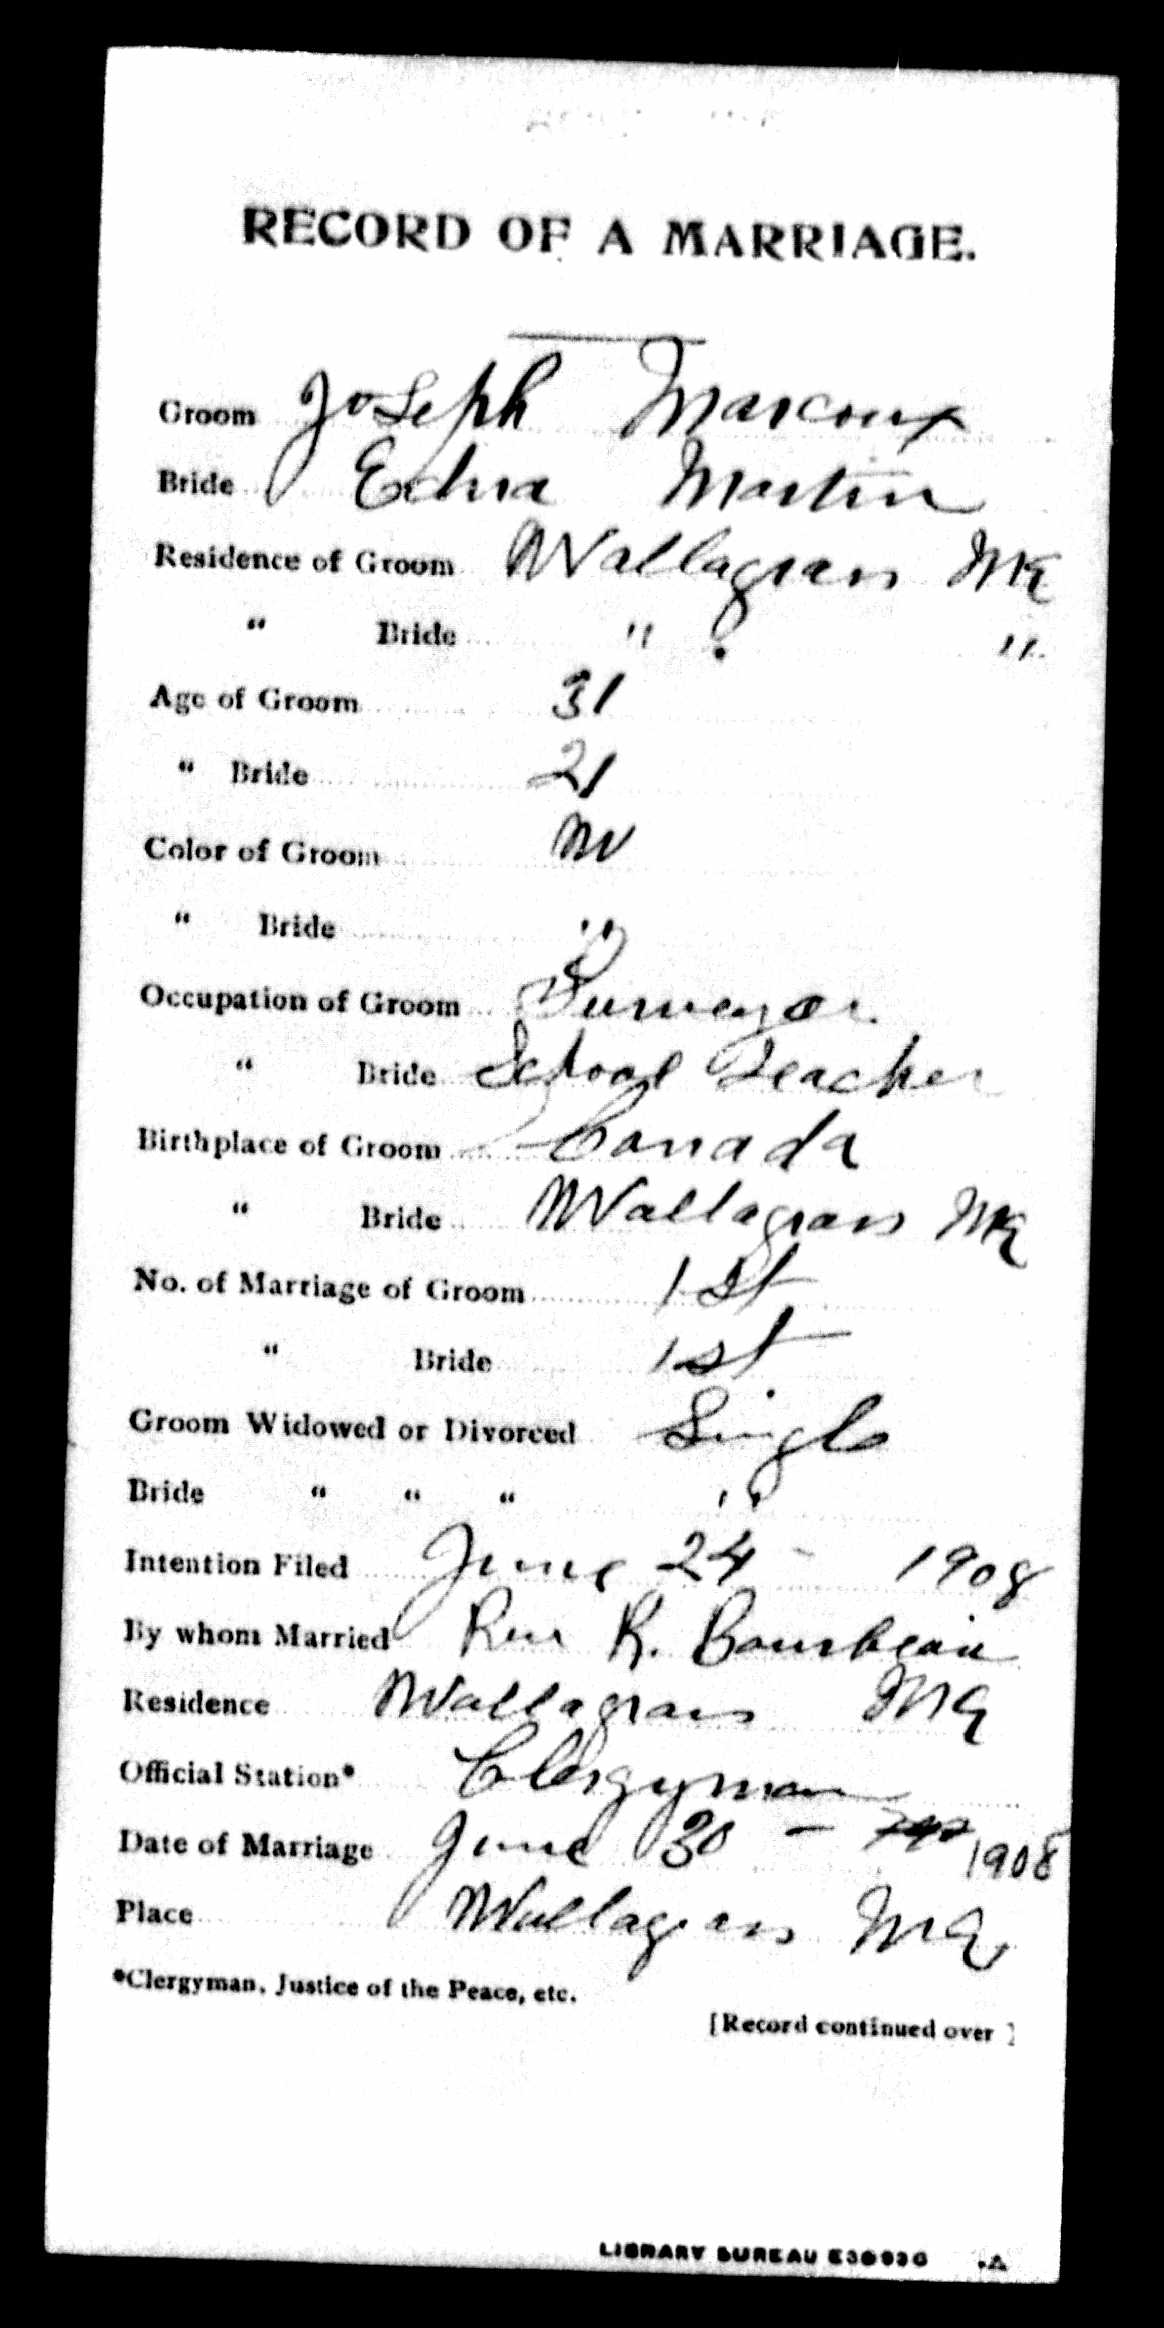 RECORD OF A MARRIAGE.
Groom Joseph Marcoux
Bride Edna Martin
Residence of Groom Wallagrass Me
" Bride " "
Age of Groom 31
" Bride 21
Color of Groom W
" Bride "
Occupation of Groom Surveyor
" Bride School Teacher
Birthplace of Groom Canada
" Bride Wallagrass Me
No. of Marriage of Groom 1st
" Bride 1st
Groom Widowed or Divorced Single
Bride " " " "
Intention Filed June 24 - 1908
By whom Married Rev R. Bourbeau
Residence Wallagrass Me
Official Station* Clergyman
Date of Marriage June 30 - 1908
Place Wallagrass Me
*Clergyman, Justice of the Peace, etc.
[Record continued over ]
LIBRARY BUREAU